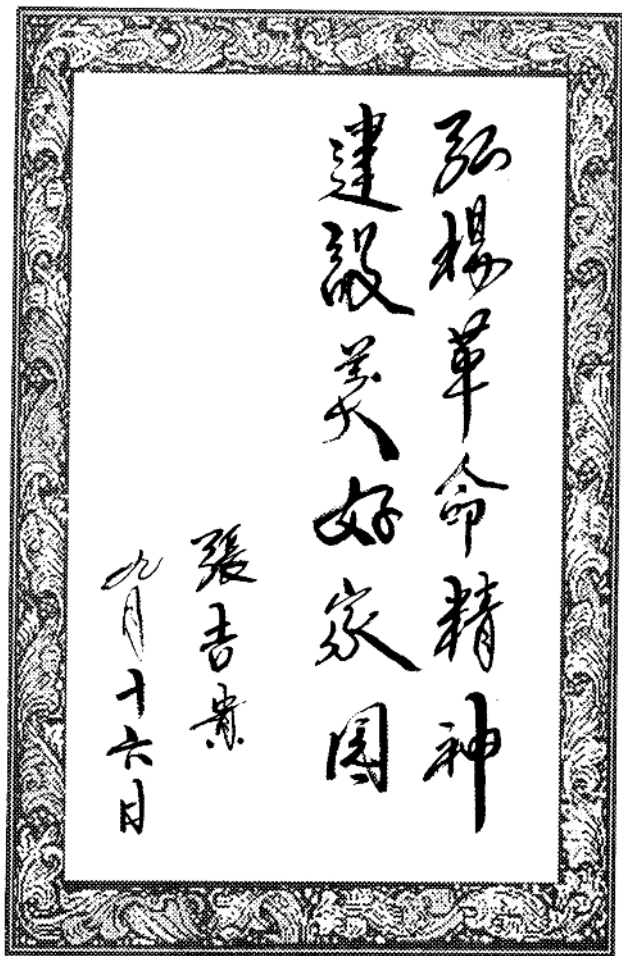 弘楊革命精神
建設美好家園
張吉貴
九月十六日